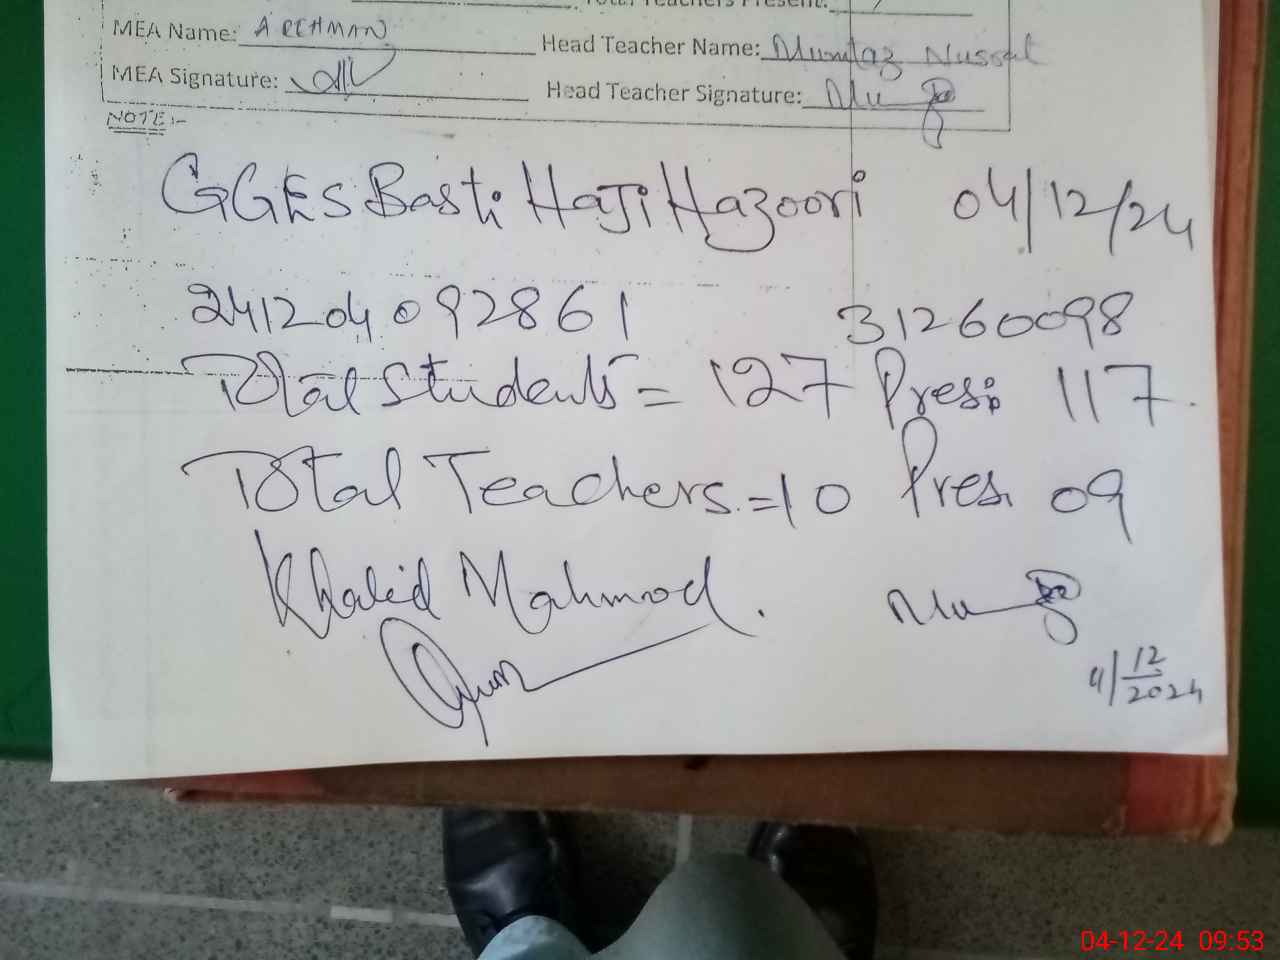 Total Teachers Present:
MEA Name: AREHMAN
Head Teacher Name: Mumtaz Nussrat
MEA Signature:
Head Teacher Signature:
NOTE:-
GGES Basti Haji Hazoori 04/12/24
241204092861 31260098
Total Students = 127 Pres: 117
Total Teachers = 10 Pres. 09
Khalid Mahmood.
4/12/2024
04-12-24 09:53